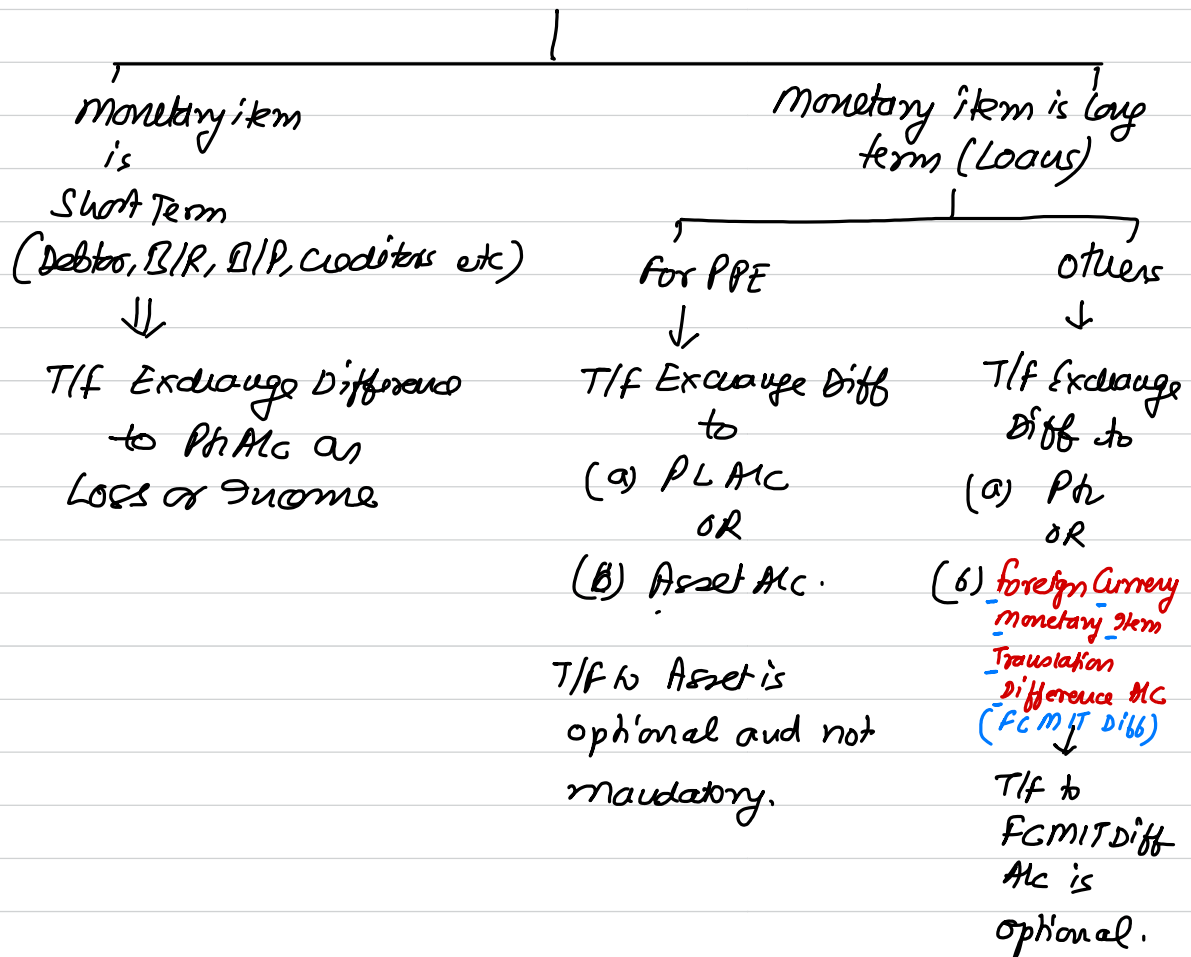 Monetary item
is
Short Term
(Debtor, B/R, B/P, Creditors etc)
⇓
T/f Exchange Difference
to P/L A/c as
Loss or Income
Monetary item is long
term (Loans)
For PPE
↓
T/f Exchange Diff
to
(a) PL A/C
OR
(b) Asset A/c.
T/f to Asset is
optional and not
mandatory.
others
↓
T/f Exchange
Diff to
(a) P/L
OR
(b) Foreign Currency
Monetary Item
Translation
Difference A/C
(FCMIT Diff)
↓
T/f to
FCMIT Diff
A/c is
optional.